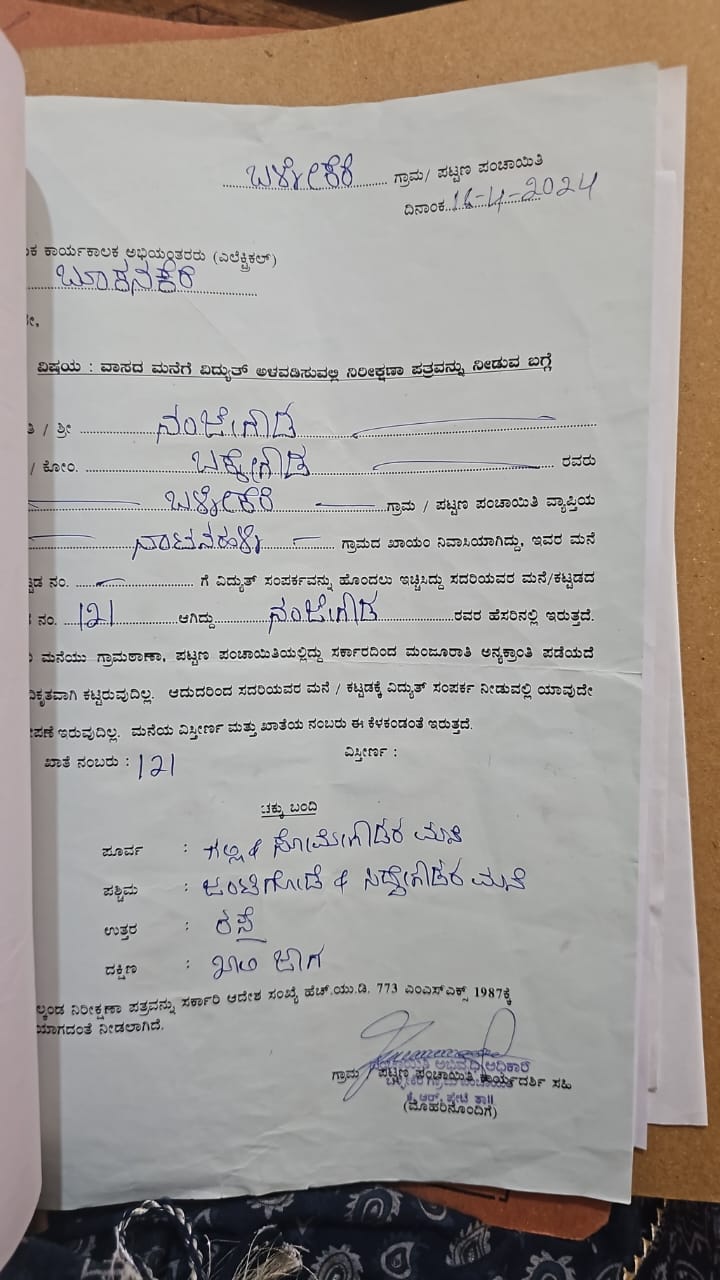 ಬಳ್ಳೇಕೆರೆ ಗ್ರಾಮ/ ಪಟ್ಟಣ ಪಂಚಾಯಿತಿ
ದಿನಾಂಕ 16-4-2024
ಕ ಕಾರ್ಯಕಾಲಕ ಅಭಿಯಂತರರು (ಎಲೆಕ್ಟ್ರಿಕಲ್)
ಬೂಕನಕೆರೆ
ರೇ,
ವಿಷಯ : ವಾಸದ ಮನೆಗೆ ವಿದ್ಯುತ್ ಅಳವಡಿಸುವಲ್ಲಿ ನಿರೀಕ್ಷಣಾ ಪತ್ರವನ್ನು ನೀಡುವ ಬಗ್ಗೆ
ತಿ / ಶ್ರೀ ನಂಜೇಗೌಡ
/ ಕೋಂ. ಬಕ್ಕೇಗೌಡ ರವರು
ಬಳ್ಳೇಕೆರೆ ಗ್ರಾಮ / ಪಟ್ಟಣ ಪಂಚಾಯಿತಿ ವ್ಯಾಪ್ತಿಯ
ನಾಟನಹಳ್ಳಿ ಗ್ರಾಮದ ಖಾಯಂ ನಿವಾಸಿಯಾಗಿದ್ದು, ಇವರ ಮನೆ
ಟ್ಟಡ ನಂ. ಗೆ ವಿದ್ಯುತ್ ಸಂಪರ್ಕವನ್ನು ಹೊಂದಲು ಇಚ್ಚಿಸಿದ್ದು ಸದರಿಯವರ ಮನೆ/ಕಟ್ಟಡದ
ನಂ. 121 ಆಗಿದ್ದು ನಂಜೇಗೌಡ ರವರ ಹೆಸರಿನಲ್ಲಿ ಇರುತ್ತದೆ.
ಮನೆಯು ಗ್ರಾಮಠಾಣಾ, ಪಟ್ಟಣ ಪಂಚಾಯಿತಿಯಲ್ಲಿದ್ದು ಸರ್ಕಾರದಿಂದ ಮಂಜೂರಾತಿ ಅನ್ಯಕ್ರಾಂತಿ ಪಡೆಯದೆ
ಧಿಕೃತವಾಗಿ ಕಟ್ಟಿರುವುದಿಲ್ಲ. ಆದುದರಿಂದ ಸದರಿಯವರ ಮನೆ / ಕಟ್ಟಡಕ್ಕೆ ವಿದ್ಯುತ್ ಸಂಪರ್ಕ ನೀಡುವಲ್ಲಿ ಯಾವುದೇ
ಕ್ಷೇಪಣೆ ಇರುವುದಿಲ್ಲ. ಮನೆಯ ವಿಸ್ತೀರ್ಣ ಮತ್ತು ಖಾತೆಯ ನಂಬರು ಈ ಕೆಳಕಂಡಂತೆ ಇರುತ್ತದೆ.
ಖಾತೆ ನಂಬರು : 121 ವಿಸ್ತೀರ್ಣ :
ಚಕ್ಕು ಬಂದಿ
ಪೂರ್ವ : ಗಲ್ಲಿ & ಸೋಮೇಗೌಡರ ಮನೆ
ಪಶ್ಚಿಮ : ಜಂಟಿಗೋಡೆ & ಸಿದ್ದೇಗೌಡರ ಮನೆ
ಉತ್ತರ : ರಸ್ತೆ
ದಕ್ಷಿಣ : ಖಾಲಿ ಜಾಗ
ಲ್ಕಂಡ ನಿರೀಕ್ಷಣಾ ಪತ್ರವನ್ನು ಸರ್ಕಾರಿ ಆದೇಶ ಸಂಖ್ಯೆ ಹೆಚ್.ಯು.ಡಿ. 773 ಎಂಎಸ್ಎಕ್ಸ್ 1987ಕ್ಕೆ
ಯಾಗದಂತೆ ನೀಡಲಾಗಿದೆ.
ಪಂಚಾಯಿತಿ ಅಭಿವೃದ್ಧಿ ಅಧಿಕಾರಿ
ಗ್ರಾಮ / ಪಟ್ಟಣ ಪಂಚಾಯಿತಿ ಕಾರ್ಯದರ್ಶಿ ಸಹಿ
ಬಳ್ಳೇಕೆರೆ ಗ್ರಾಮ ಪಂಚಾಯಿತಿ
ಕೆ. ಆರ್. ಪೇಟೆ ತಾ||
(ಮೊಹರಿನೊಂದಿಗೆ)